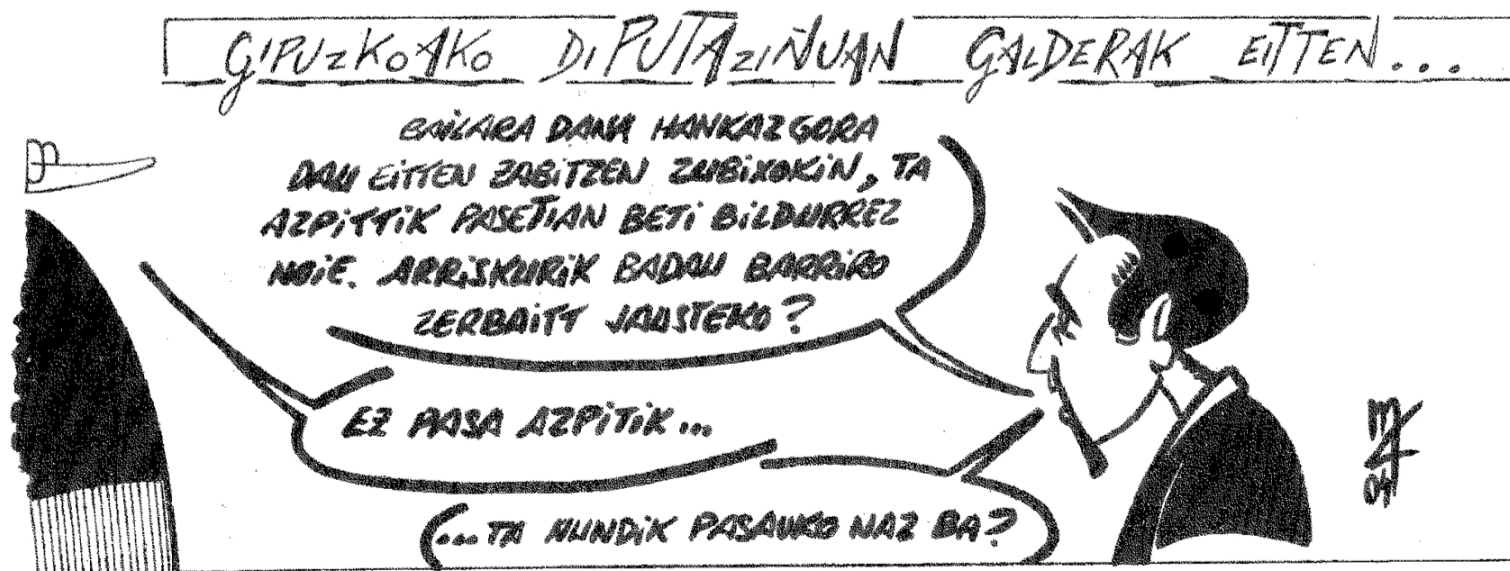 GIPUZKOAKO DIPUTAZIÑUAN GALDERAK EITTEN...
BAILARA DANA HANKAZ GORA
DAU EITTEN ZABITZEN ZUBIXOKIN, TA
AZPITTIK PASETIAN BETI BILDURREZ
NOIE. ARRISKURIK BADAU BARRIRO
ZERBAITT JAUSTEKO?
EZ PASA AZPITIK...
...TA NUNDIK PASAUKO NAZ BA?
04